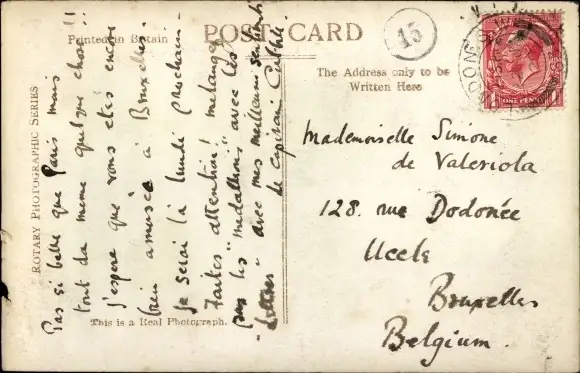 Printed in Britain
POST CARD
15
The Address only to be
Written Here
ONE PENNY
ROTARY PHOTOGRAPHIC SERIES
Pas si belle que Paris mais
tout da meme quelque chose!!
J'espere que vous etes encore
bien amusée à Bruxelles
Je serai là lundi prochain-
Faites attention! melangez
pas les "medallions" avec les
"lettres" avec mes meilleurs sentiments
Le Capitain
This is a Real Photograph.
Mademoiselle Simone
de Valeriola
128. rue Dodonée
Uccle
Bruxelles
Belgium.